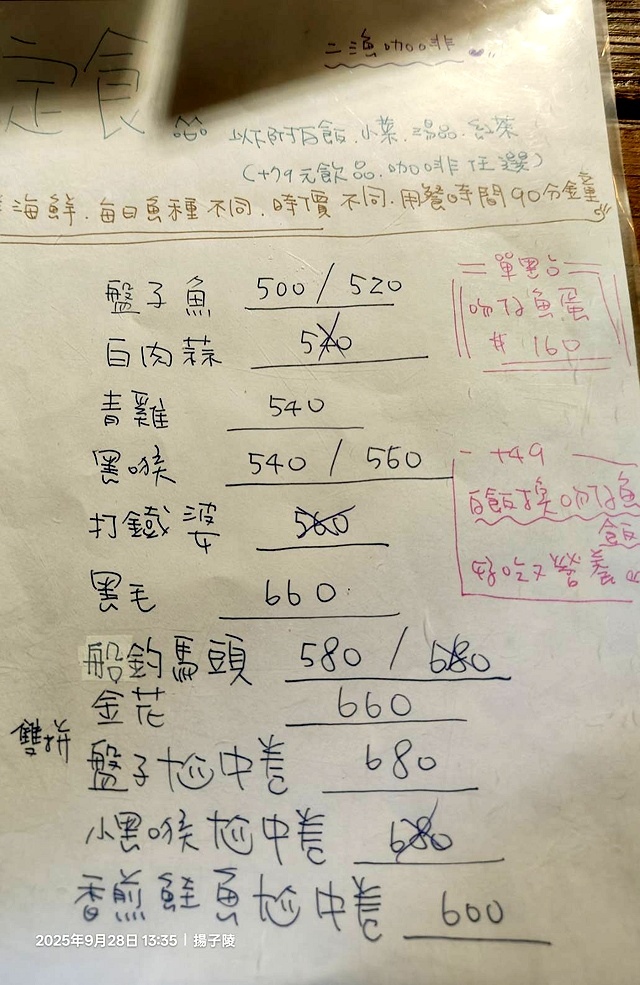 定食
二漁咖啡
以下附白飯.小菜.湯品.紅茶
(+79元飲品.咖啡任選)
海鮮.每日魚種不同.時價不同.用餐時間90分鐘
盤子魚 500/520
白肉蒜 540
青雞 540
黑喉 540/560
打鐵婆 560
黑毛 660
船釣馬頭 580/680
金花 660
雙拼
盤子尬中卷 680
小黑喉尬中卷 680
香煎鮭魚尬中卷 600
單點
吻仔魚蛋
$160
+49
白飯換吻仔魚
飯
好吃又營養
2025年9月28日 13:35 | 揚子陵